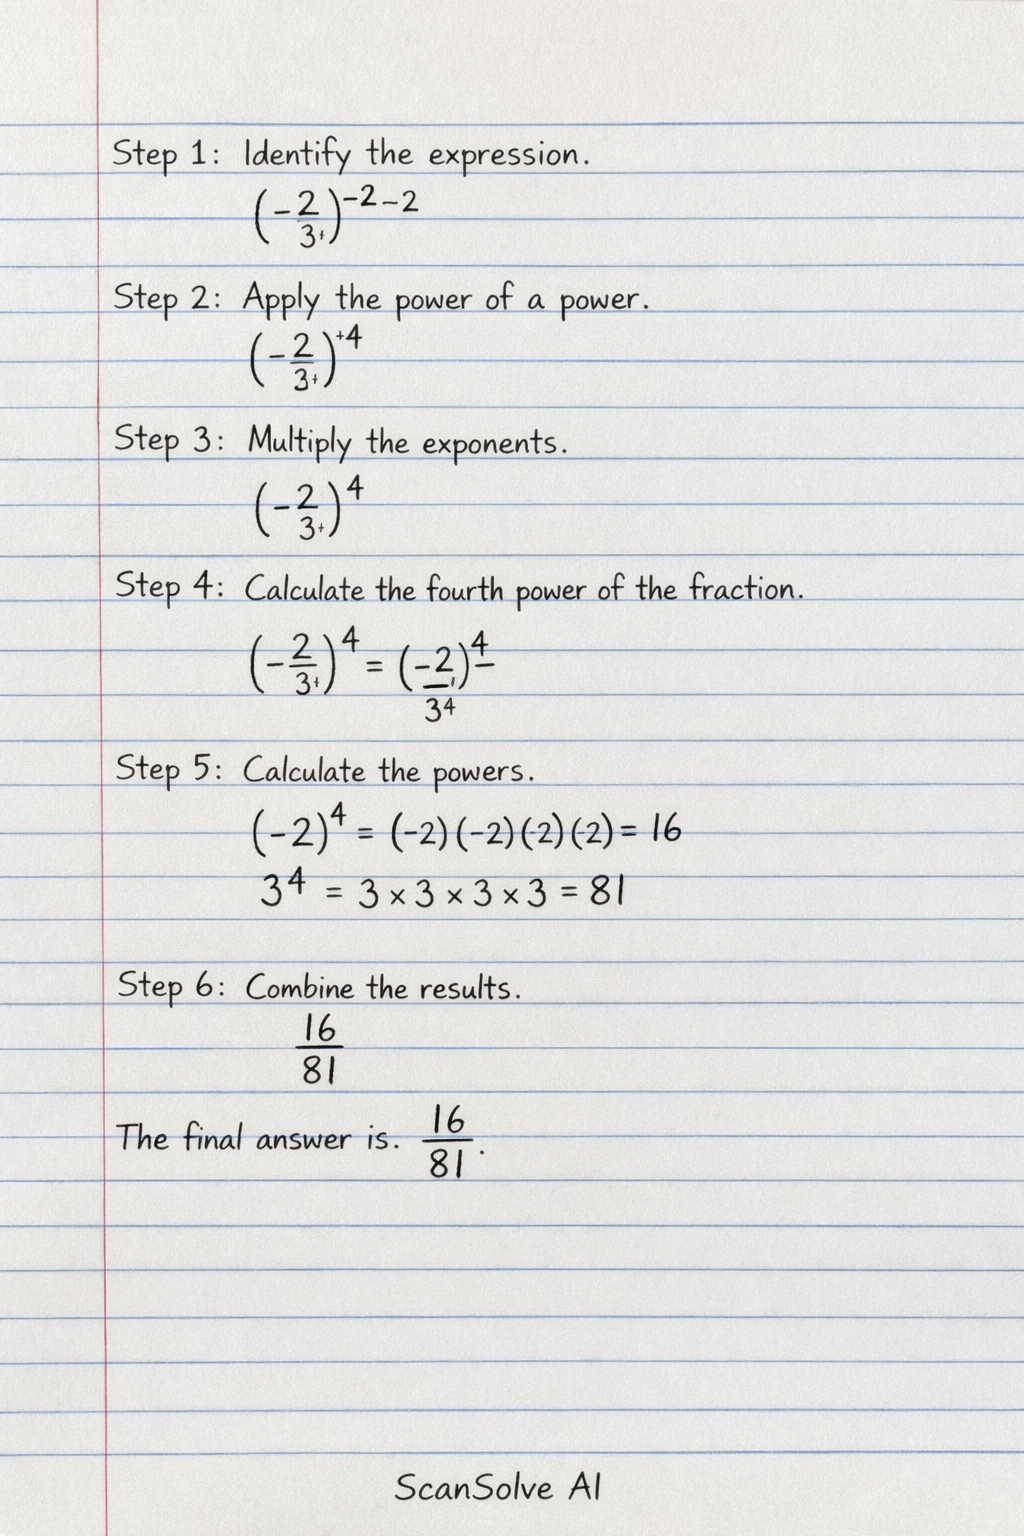 Step 1: Identify the expression.
(-2/3+)^-2-2
Step 2: Apply the power of a power.
(-2/3+)^+4
Step 3: Multiply the exponents.
(-2/3+)^4
Step 4: Calculate the fourth power of the fraction.
(-2/3+)^4 = (-2)^4/3^4
Step 5: Calculate the powers.
(-2)^4 = (-2)(-2)(2)(-2) = 16
3^4 = 3 × 3 × 3 × 3 = 81
Step 6: Combine the results.
16/81
The final answer is. 16/81.
ScanSolve AI